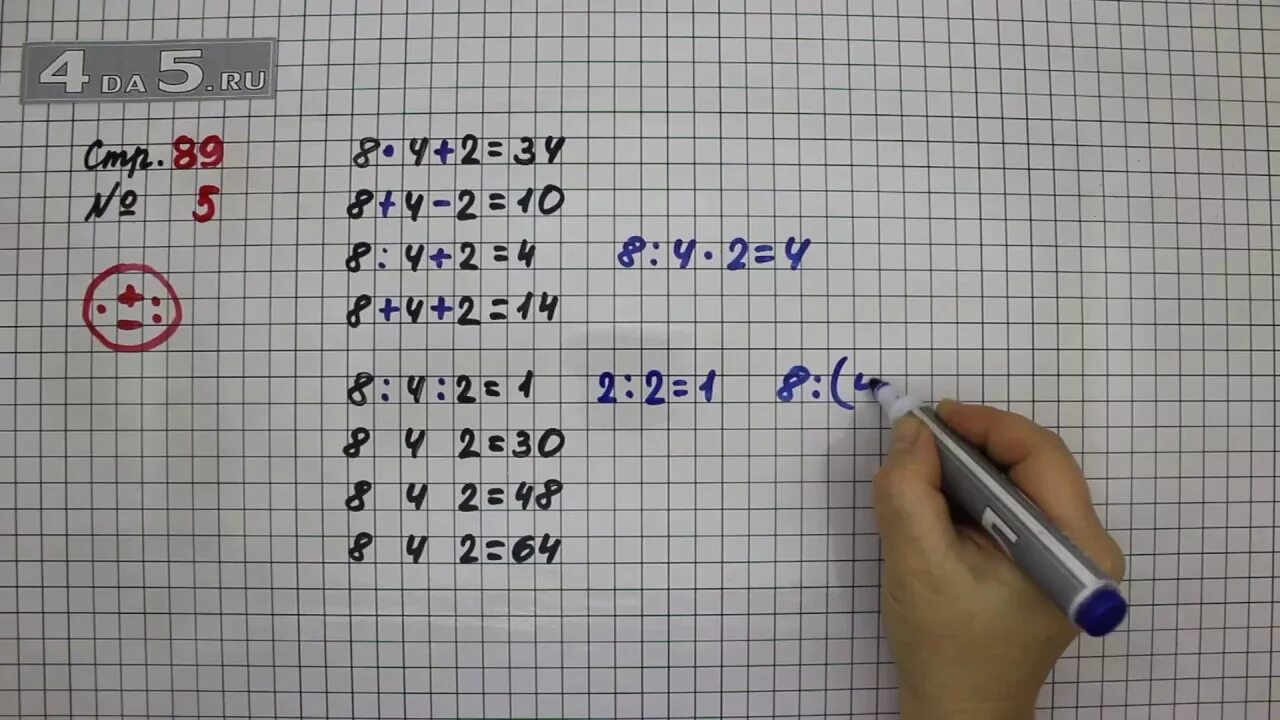 4DA5.RU
Стр. 89
№ 5
+
· :
−
8 · 4 + 2 = 34
8 + 4 - 2 = 10
8 : 4 + 2 = 4 8 : 4 · 2 = 4
8 + 4 + 2 = 14
8 : 4 : 2 = 1 2 : 2 = 1 8 : (4
8 4 2 = 30
8 4 2 = 48
8 4 2 = 64